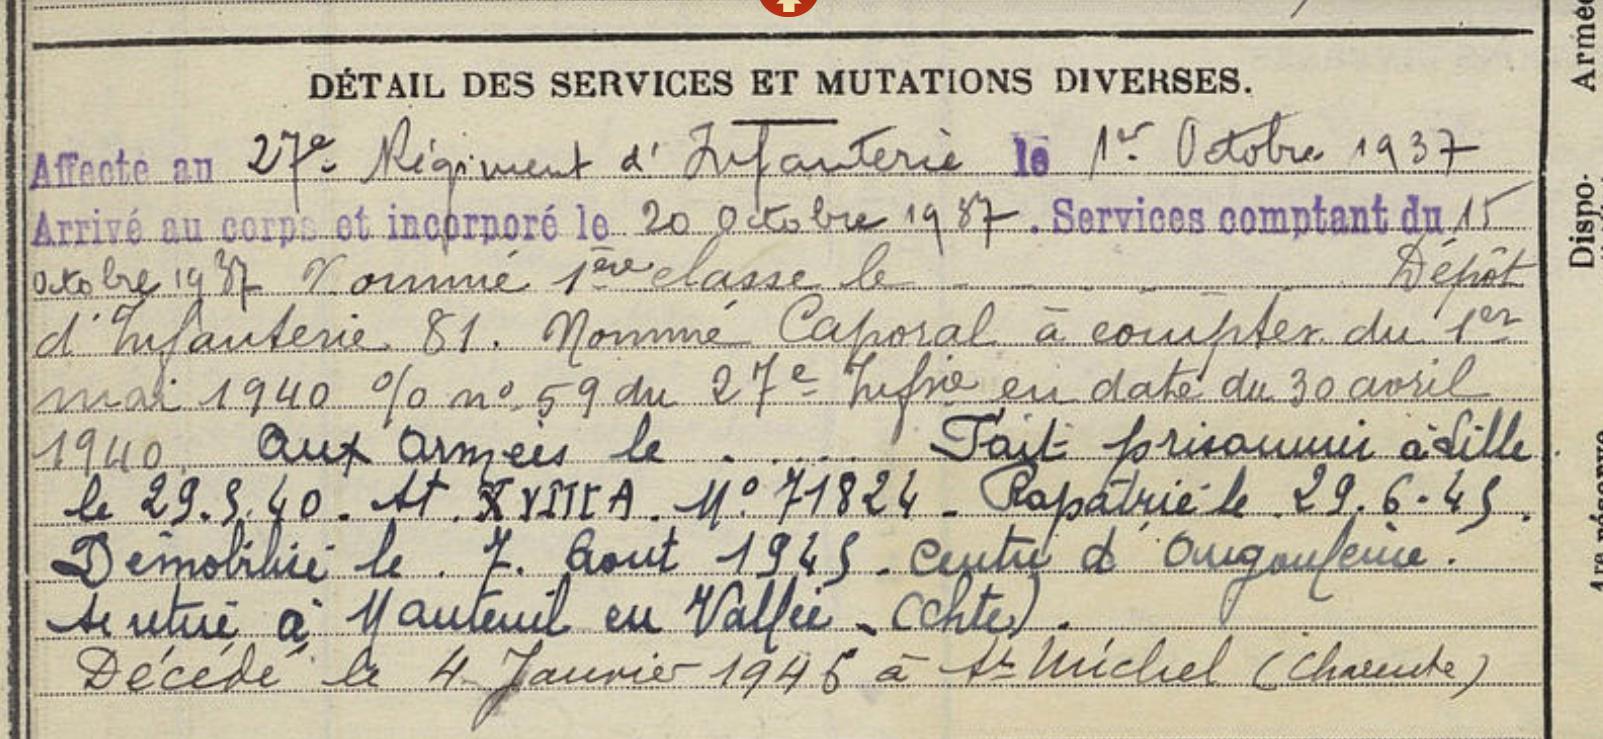 DÉTAIL DES SERVICES ET MUTATIONS DIVERSES.
Affecté au 27e Régiment d'Infanterie le 1er Octobre 1937
Arrivé au corps et incorporé le 20 Octobre 1937. Services comptant du 15
octobre 1937 Nommé 1ère classe le Dépôt
d'Infanterie 81. Nommé Caporal à compter du 1er
mai 1940 % no 59 du 27e Infrie en date du 30 avril
1940. Aux Armées le ..... Fait prisonnier à Lille
le 29.5.40. St XVIII A. No 71824 - Rapatrié le 29.6.45.
Démobilisé le 7. Aout 1945. Centre d'Angoulème.
Se retire à Nanteuil en Vallée - (Chte).
Décédé le 4 Janvier 1946 à St Michel (Charente)
Armée
Dispo-
1re réserve